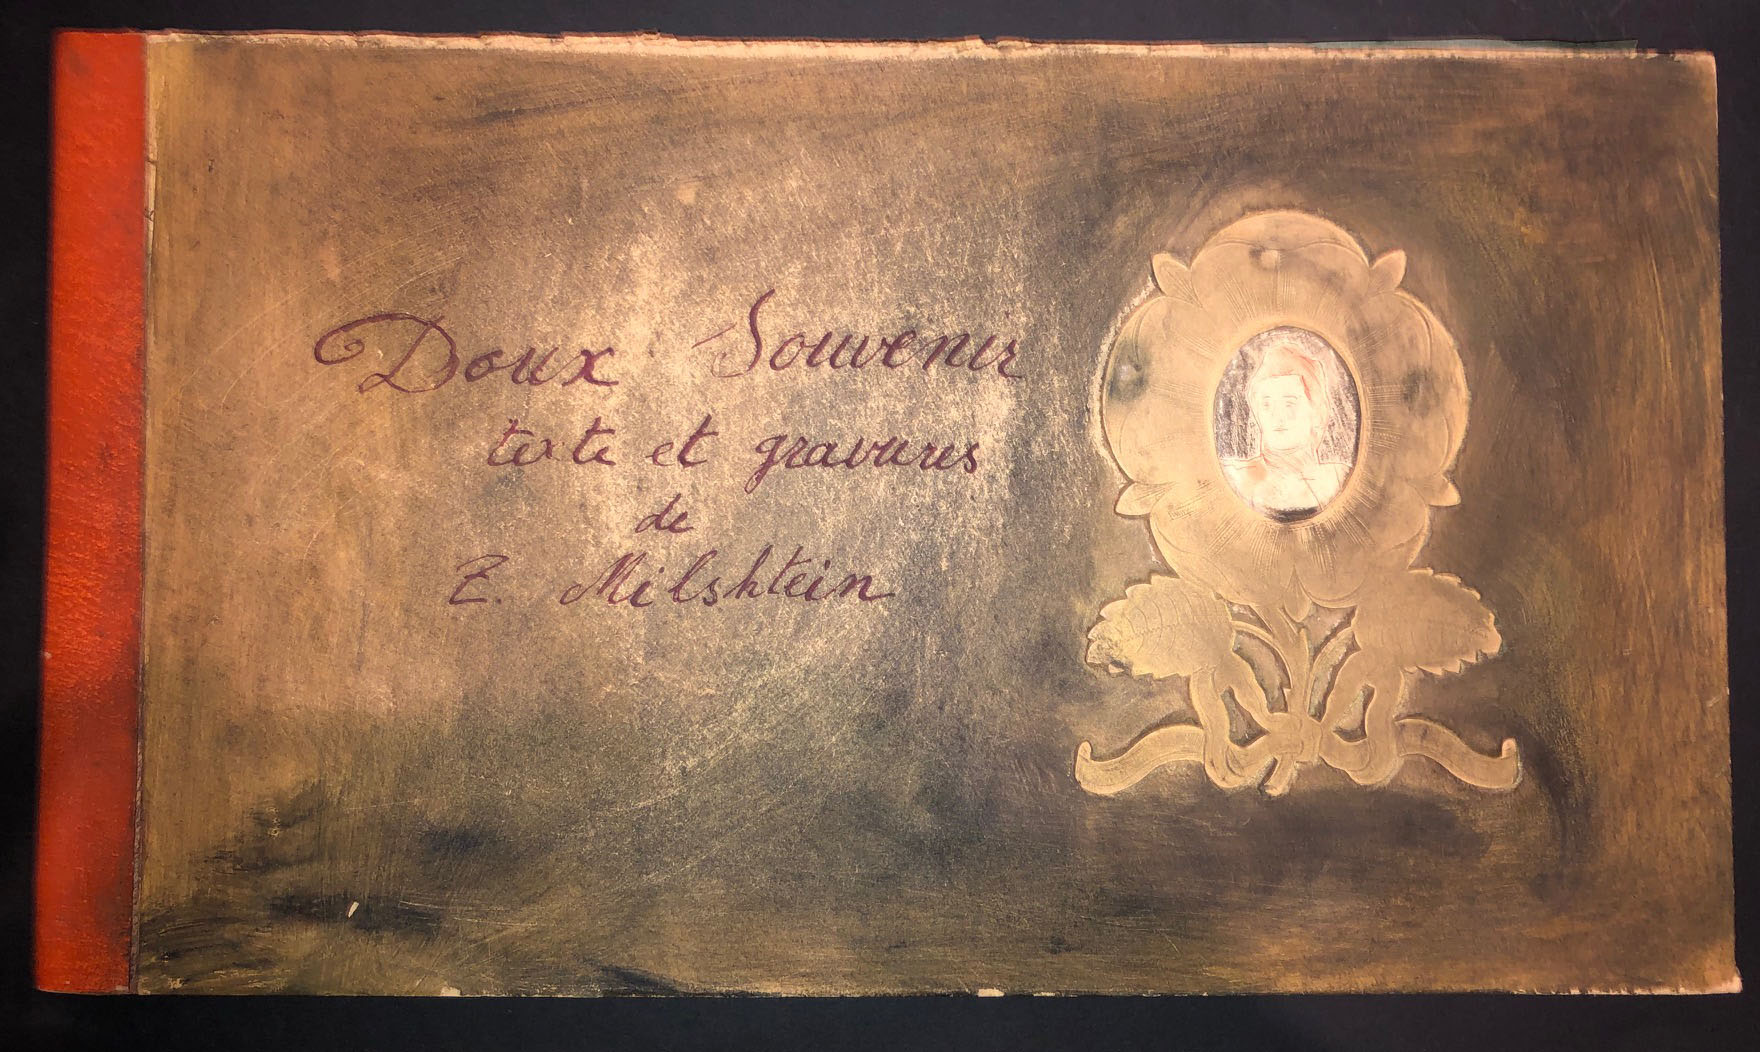 Doux Souvenir
texte et gravures
de
Z. Milshtein